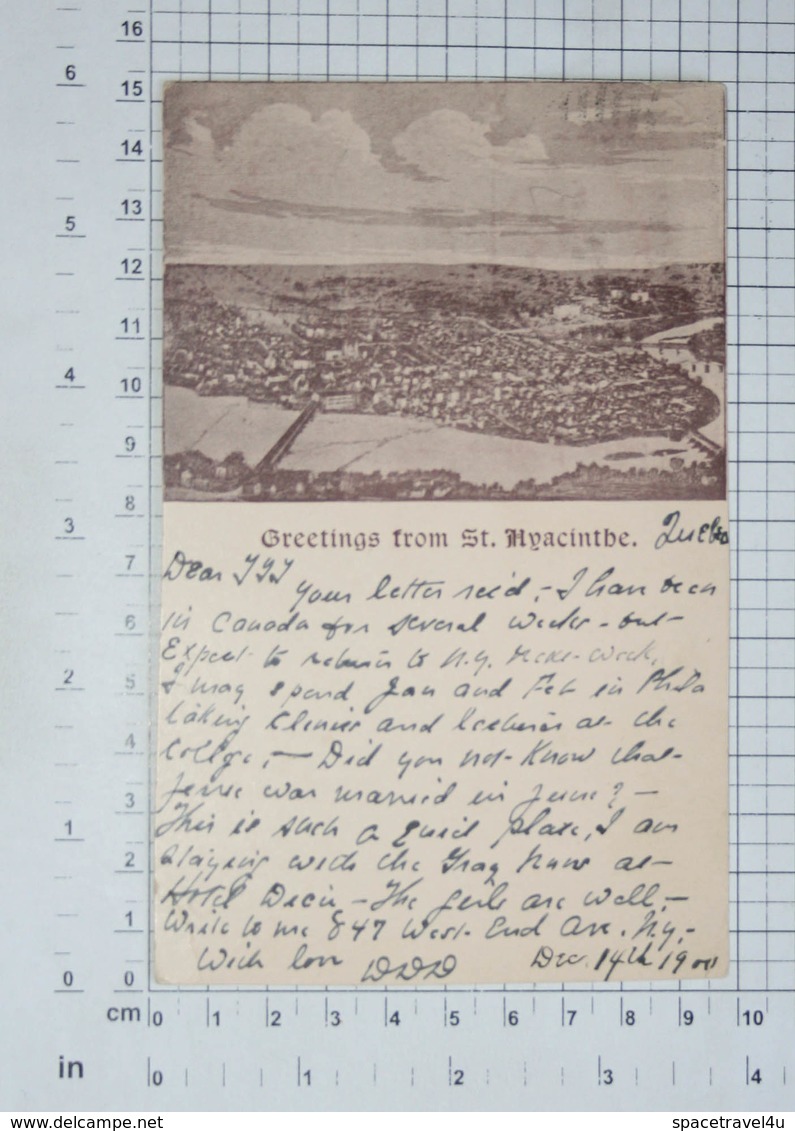 16
15
14
13
12
11
10
9
8
7
6
5
4
3
2
1
0
6
5
4
3
2
1
0
Greetings from St. Hyacinthe. Quebec
Dear
your letter rec'd, - I have been
in Canada for several weeks - but
Expect to return to N.Y. next week,
I may spend Jan and Feb in Phila
taking Clinics and lectures at the
College, - Did you not know that
was married in June? -
This is such a quiet place, I am
staying with the
Hotel - The girls are well, -
Write to me 847 West End Ave. N.Y. -
With love DDD Dec. 14th 19
cm 0 1 2 3 4 5 6 7 8 9 10
in 0 1 2 3 4
www.delcampe.net spacetravel4u